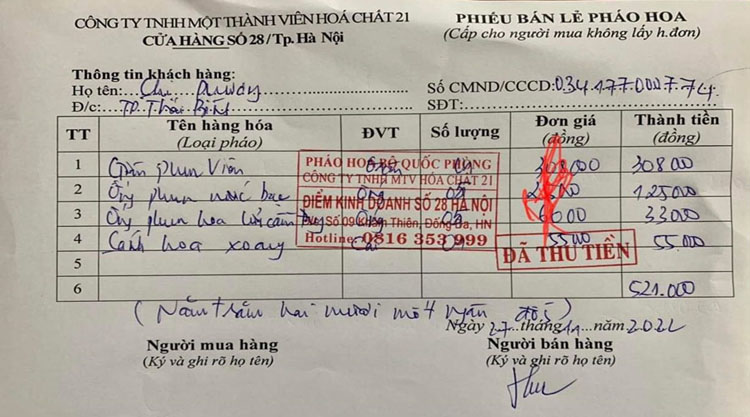 CÔNG TY TNHH MỘT THÀNH VIÊN HOÁ CHẤT 21
CỬA HÀNG SỐ 28/Tp.Hà Nội
PHIẾU BÁN LẺ PHÁO HOA
(Cấp cho người mua không lấy h.đơn)
Thông tin khách hàng:
Họ tên: Chị
Số CMND/CCCD:
Đ/c: TP. Thái Bình
SĐT:
TT Tên hàng hóa (Loại pháo) ĐVT Số lượng Đơn giá (đồng) Thành tiền (đồng)
1 Giàn phun Viên 308.000
2 Ống phun nước bạc 125.000
3 Ống phun hoa 33000
4 Cánh hoa xoay 55.000
5
6 521.000
PHÁO HOA BỘ QUỐC PHÒNG
CÔNG TY TNHH MTV HÓA CHẤT 21
ĐIỂM KINH DOANH SỐ 28 HÀ NỘI
Số 09 Khâm Thiên, Đống Đa, HN
Hotline: 0816 353 999
ĐÃ THU TIỀN
(Năm trăm hai mươi một ngàn đồng)
Ngày 27 tháng 11 năm 2022
Người mua hàng
(Ký và ghi rõ họ tên)
Người bán hàng
(Ký và ghi rõ họ tên)